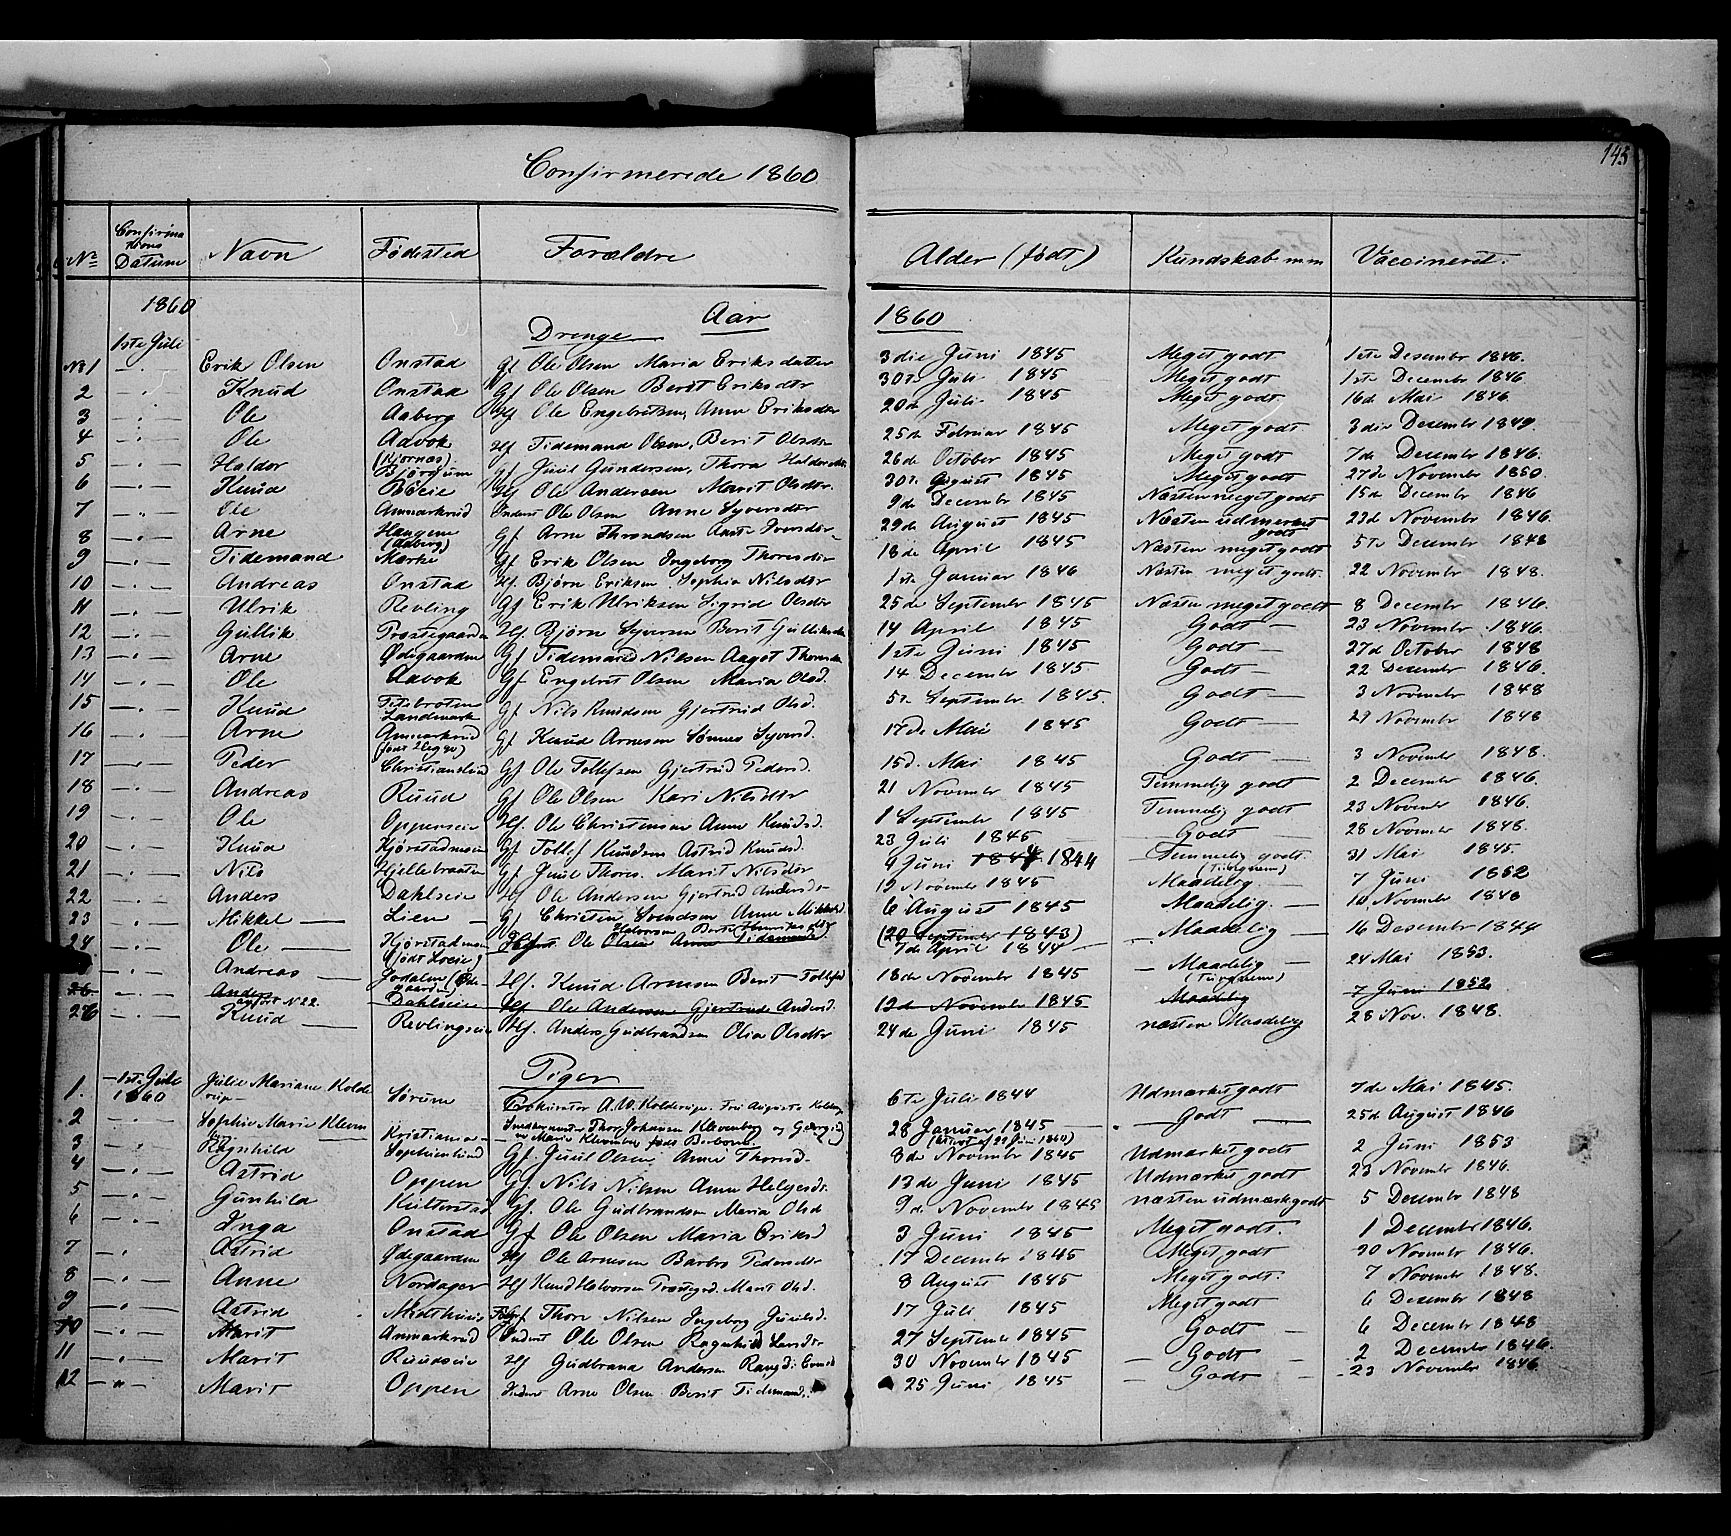 143
Confirmerede 1860
No Confirmations Datum Navn Fødested Forældre Alder (født) Kundskab mm Vaccineret.
1860 Aar 1860
1ste Juli Drenge
No 1 Erik Olsen Onstad Gf Ole Olsen Maria Eriksdatter 3die Juni 1845 Meget godt 1ste Desember 1846.
2 Knud Onstad Gf Ole Olsen Berit Eriksdtr 30te Juli 1845 Meget godt 1ste December 1846
3 Ole Aaberg Hf Ole Engebretsen, Anne Eriksdtr 20de Juli 1845 Meget godt 16de Mai 1846
4 Ole Aavok Hf Tidemand Olsen, Berit Olsdtr 25de Februar 1845 Meget godt 3die Desember 1849.
5 Haldor (Kjørnæs) Bjørgum Gf Juul Gundersen, Thora Haldorsdtr 26de October 1845 Meget godt 7de Desember 1846.
6 Knud Bøeie Hf Ole Andersen Marit Olsdtr. 30te August 1845 Meget godt 27de November 1850.
7 Ole Anmarkrud Inderst Ole Olsen Anne Syversdtr 9de Decembr 1845 Næsten meget godt 15de Decembr 1846
8 Arne Haugene (Aaberg) Gf Arne Throndsen 29de August 1845 Næsten udmerket godt 23de November 1846.
9 Tidemand Mærke Gf Erik Olsen Ingeborg Thoresdtr 18de April 1845 Næsten meget godt 5te Desember 1848
10 Andreas Onstad Hf. Bjørn Eriksen Sophia Nilsdtr 1ste Januar 1846 Næsten meget godt. 22 November 1848.
11 Ulrik Revling Gf Erik Ulriksen Sigrid Olsdtr 25de September 1845 Næsten meget godt 8 Decembr 1846.
12 Gullik Præstegaarden Hf. Bjørn Syversen Berit Gulliksdtr 14 April 1845 Godt — 23 November 1846.
13 Arne Ødegaarden Gf Tidemand Nilsen Aagot Thorsdtr 1ste Juni 1845 Godt — 27de October 1848
14 Ole Aavok Gf Engebret Olsen Maria Olsd. 14 December 1845 Godt — 22 Desember 1846.
15 Knud Landemærk Gf. Nils Knudsen Gjertrud Olsd. 5te September 1845. Godt — 3 November 1848
16 Arne Anmarkrud Gf Knud Arnesen Synnes Syversd. 17de Mai 1845 Godt — 29 November 1848
17 Peder Christianslund Gf Ole Tollefsen Gjertrud Pedersd. 15d. Mai 1845 Godt — 3 November 1848.
18 Andreas Ruud Gf Ole Olsen Kari Nilsdtr 21 November 1845 Temmelig godt 2 December 1846.
19 Ole Oppenseie Hf. Ole Christensen Anne Knudsd. 1 September 1845 Temmelig godt 23 November 1846.
20 Knud Kjørstadmoen Gf Tollef Knudsen Astrid Knudsd. 23 Juli 1845 — Godt — 28 November 1848.
21 Nils Hjellebraaten Gf. Juul Thores. Marit Nilsdtr 9 Juni 1844 Temmelig godt. 31 Mai 1845.
22 Anders Dahlseie Hf Ole Andersen Gjertrud Andersdtr 12 November 1845 Maadelig — 7 Juni 1852
23 Mikkel — Lien — Gf Christen Svendsen Anne Mikkelsd. 6 August 1845 Maadelig. — 10 November 1848
24 Ole — Kjørstadmoen (født Loeie) Ole Olsen Anne Tidemandsd (20 September 1843) 7de April 1844 — Maadelig — 16 Desember 1844
Andreas — Jodalen (Ødegaarden) Hf. Knud Arnesen Berit Tollefsd 18de November 1845 — Maadelig — 24 Mai 1853.
Anders anført N 22. Dahlseie Hf Ole Andersen Gjertrud Andersd. 12de November 1845 Maadelig 7 Juni 1852
26 Knud — Revlingseie Hf. Anders Gudbrandsen Olia Olsdtr 24de Juni 1845 næsten Maadelig 28 Nov. 1848.
Piger
1. 1ste Juli 1860 Julie Mariane Kolderup Sørum Prokurator A.W. Kolderup. Fru Augusta Kolderup 6te Juli 1844 Udmærket godt 7de Mai 1845.
2 Sophie Marie Klevenberg Kristiania Thor Johansen Klevenberg og Marie Klevenberg født 28 Januar 1845 — Godt — 25de August 1846
3 Ragnhild Sophienlund Gf. Juul Olsen, Anne Thoresd. 8de November 1845 Udmærket godt 2 Juni 1853
4 Astrid Oppen Gf. Nils Nilsen Anne Helgesdtr 13de Juni 1845 Udmærket godt 23 November 1846.
5 Gunhild Kittorstad Gf. Ole Gudbrandsen Maria Olsd 9de November 1845 næsten udmærk. godt 5 Desember 1848
6 Inga Onstad Gf Ole Olsen Maria Eriksd 3 Juni 1845 Meget godt. 1 December 1846.
7 Astrid Ødegaarden Hf Ole Arnesen Barbro Pedersdtr 17 December 1845 Meget godt 30 November 1846.
8 Anne Nordager Hf Knud Halvorsen Præstgrd. Marit Olsd. 8 August 1845 Meget godt. 7 November 1848.
9 Astrid Midthuus Gf Thore Nilsen Ingeborg Juulsd. 17 Juli 1845 Meget godt 6 Desember 1848
10 Marit Anmarkrud Inderst Ole Olsen Ragnhild Larsdtr 27 September 1845 Godt — 6 December 1848
11 Marit Ruudseie Hf Gudbrand Andersen 30 November 1845 — Godt — 2 December 1846.
12 Marit Oppen Inderst Arne Olsen Berit Tidemandsd. 25 Juni 1845 — Godt — 23 November 1846